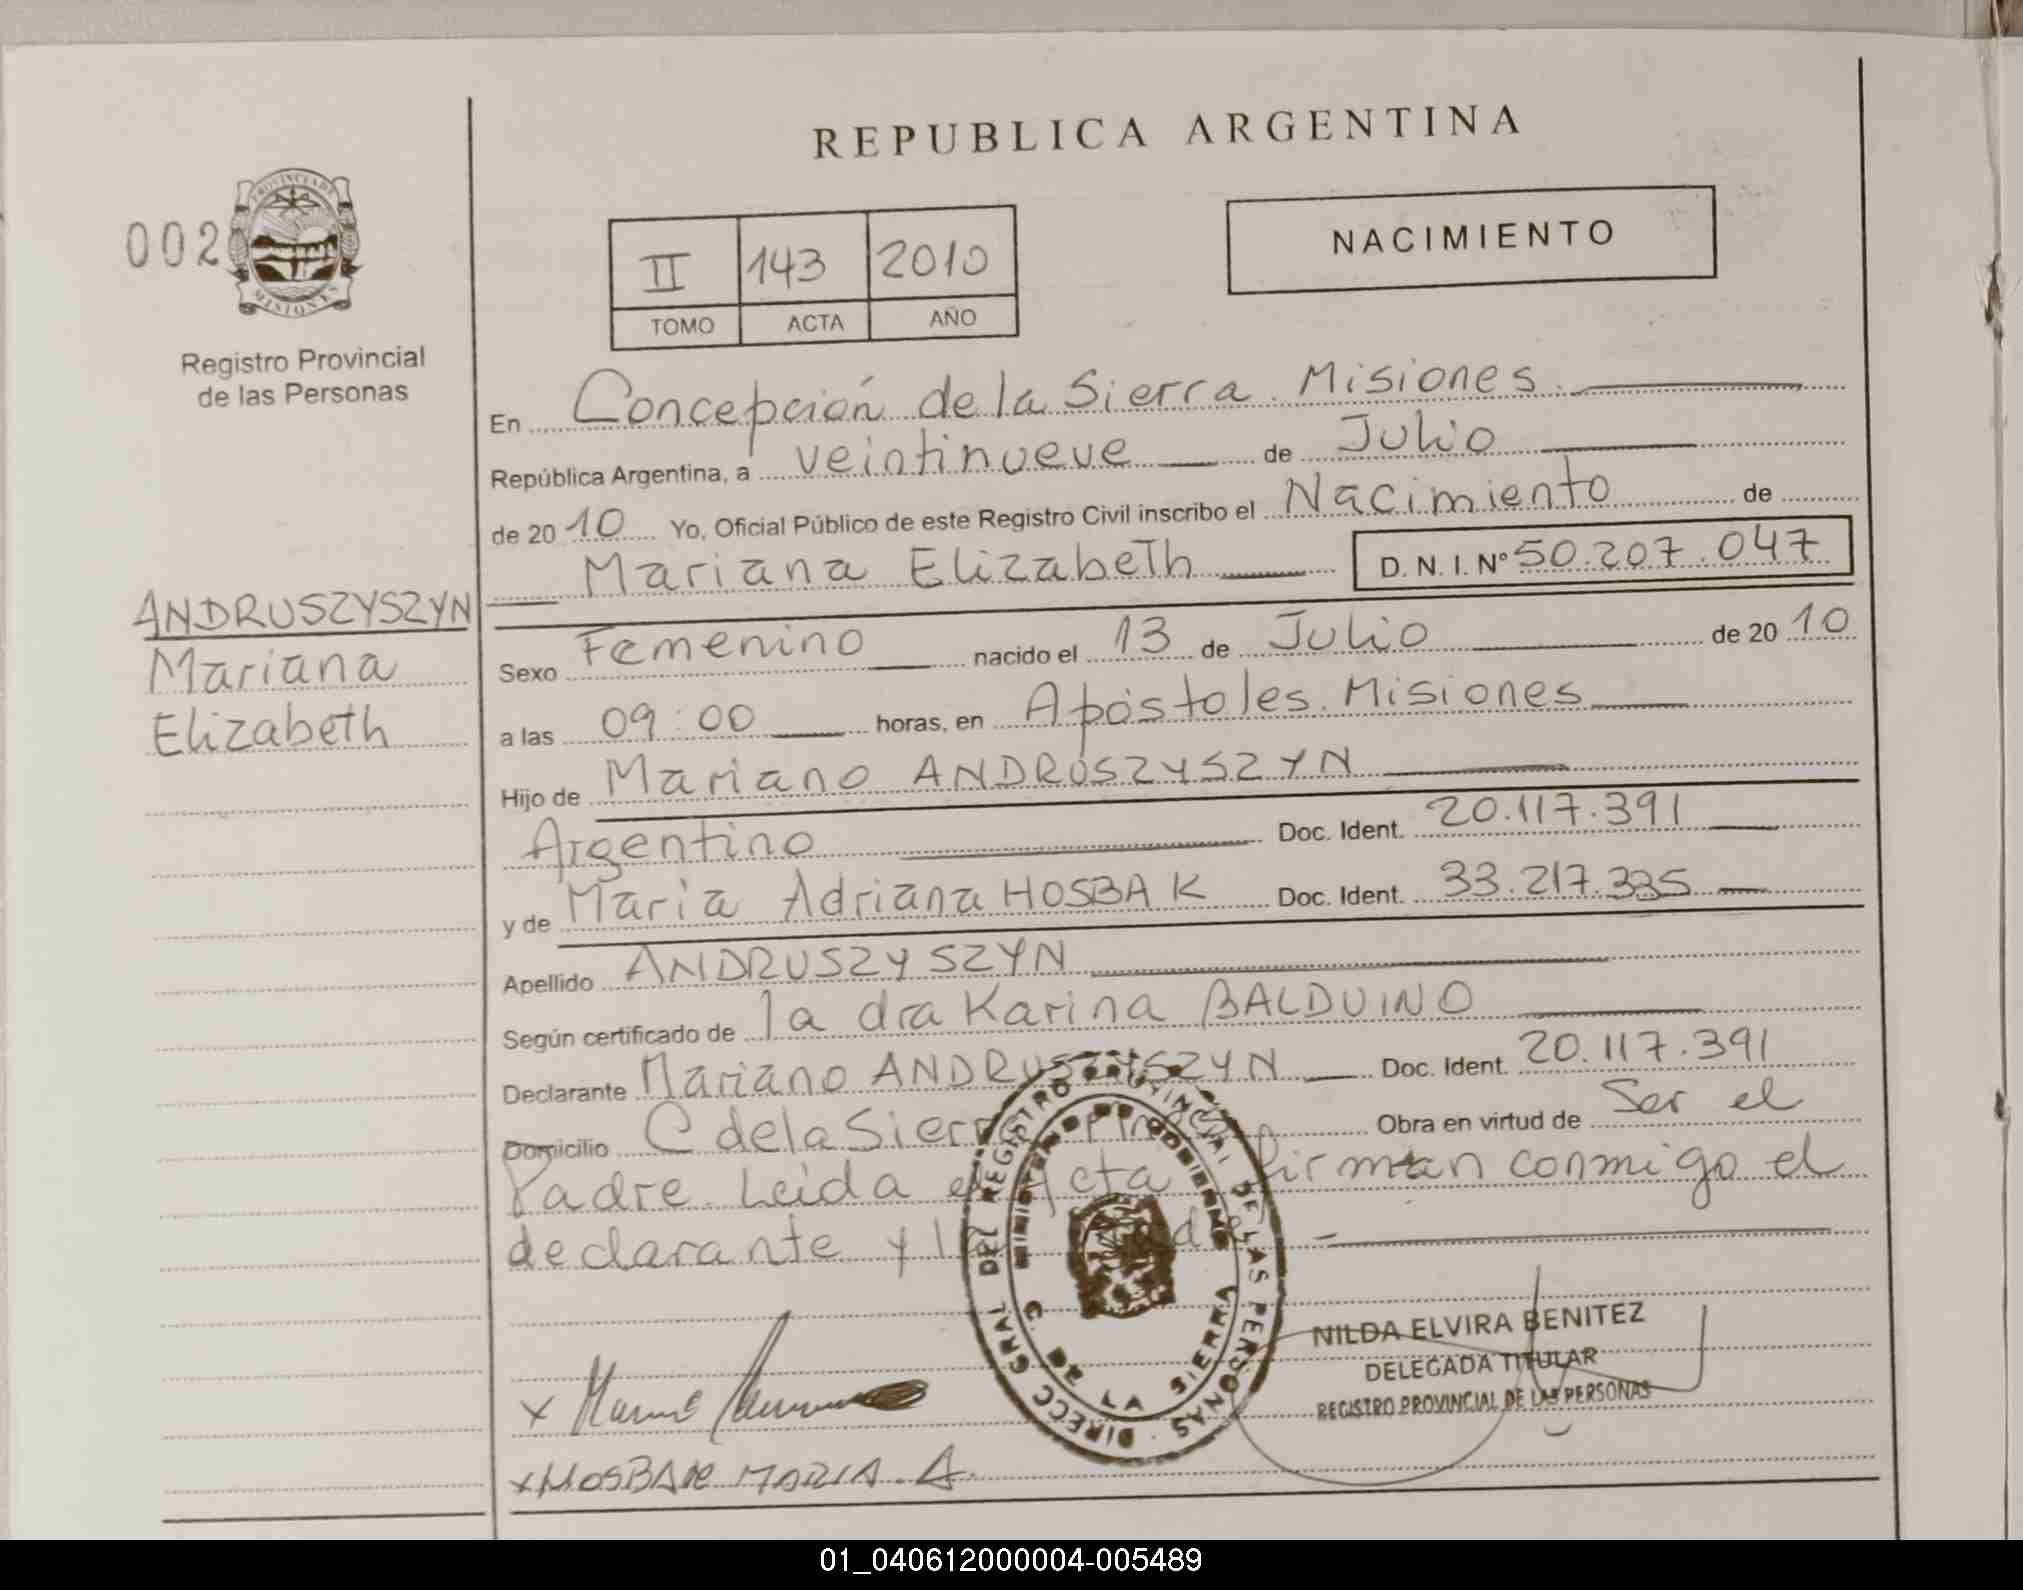 REPUBLICA ARGENTINA
002
PROVINCIA DE
MISIONES
Registro Provincial
de las Personas
II 143 2010
TOMO ACTA AÑO
NACIMIENTO
En Concepción de la Sierra. Misiones.
República Argentina, a veintinueve de Julio
de 20 10 Yo, Oficial Público de este Registro Civil inscribo el Nacimiento de
Mariana Elizabeth D. N. I. N° 50.207.047
ANDRUSZYSZYN
Mariana
Elizabeth
Sexo Femenino nacido el 13 de Julio de 20 10
a las 09:00 horas, en Apóstoles. Misiones
Hijo de Mariano ANDRUSZYSZYN
Argentino Doc. Ident. 20.117.391
y de María Adriana HOSBAK Doc. Ident. 33.217.335
Apellido ANDRUSZYSZYN
Según certificado de la dra Karina BALDUINO
Declarante Mariano ANDRUSZYSZYN Doc. Ident. 20.117.391
Domicilio C de la Sierra Obra en virtud de Ser el
Padre. Leida el Acta firman conmigo el
declarante y
DIRECC GRAL DEL REGISTRO PROVINCIAL DE LAS PERSONAS
MINISTERIO DE GOBIERNO
C. DE LA SIERRA
NILDA ELVIRA BENITEZ
DELEGADA TITULAR
REGISTRO PROVINCIAL DE LAS PERSONAS
x HOSBAK MARIA. A.
01_040612000004-005489